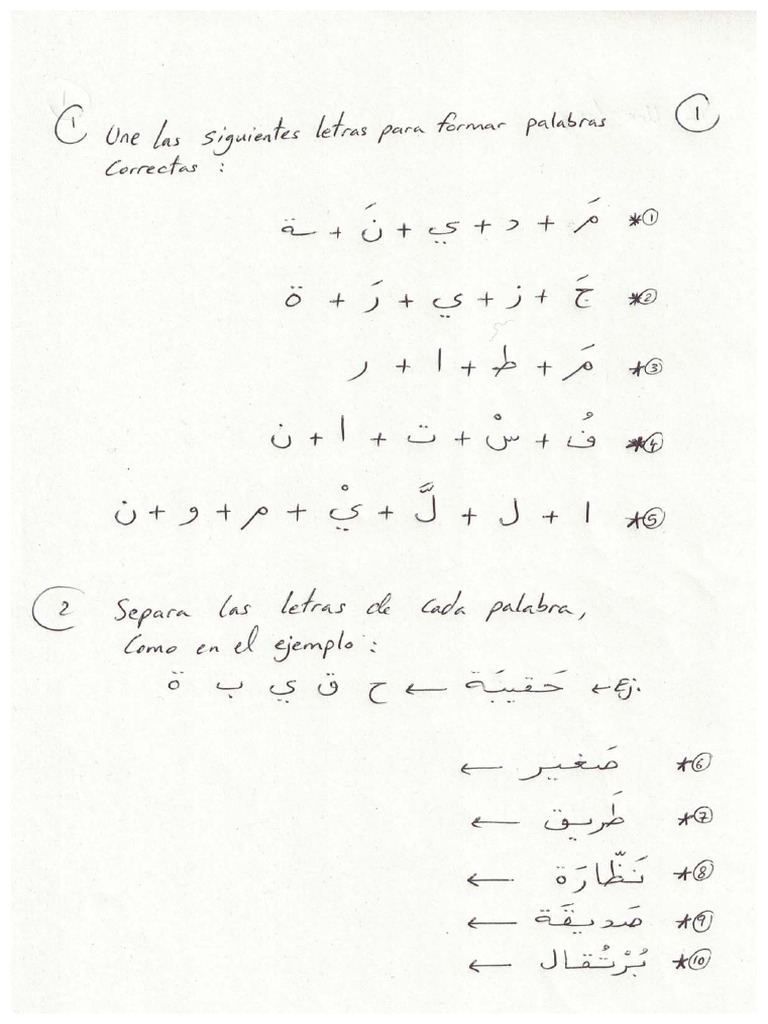 ① Une las siguientes letras para formar palabras ①
Correctas :
*① مَ + د + ي + نَ + ـة
*② جَ + ز + ي + رَ + ة
*③ مَ + ط + ا + ر
*④ فُ + سْ + ت + ا + ن
*⑤ ا + ل + لَّ + يْ + م + و + ن
② Separa las letras de cada palabra,
Como en el ejemplo :
Ej. ← حَقيبَة ← ح ق ي ب ة
*⑥ صَغير ←
*⑦ طَريق ←
*⑧ نَظّارَة ←
*⑨ صَديقَة ←
*⑩ بُرْتُقال ←